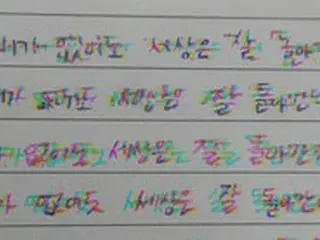 내가 없어도 세상은 잘 돌아
가 없어도 세상은 잘 돌아간
가 없어도 세상은 잘 돌아간
없어도 세상은 잘 돌아간